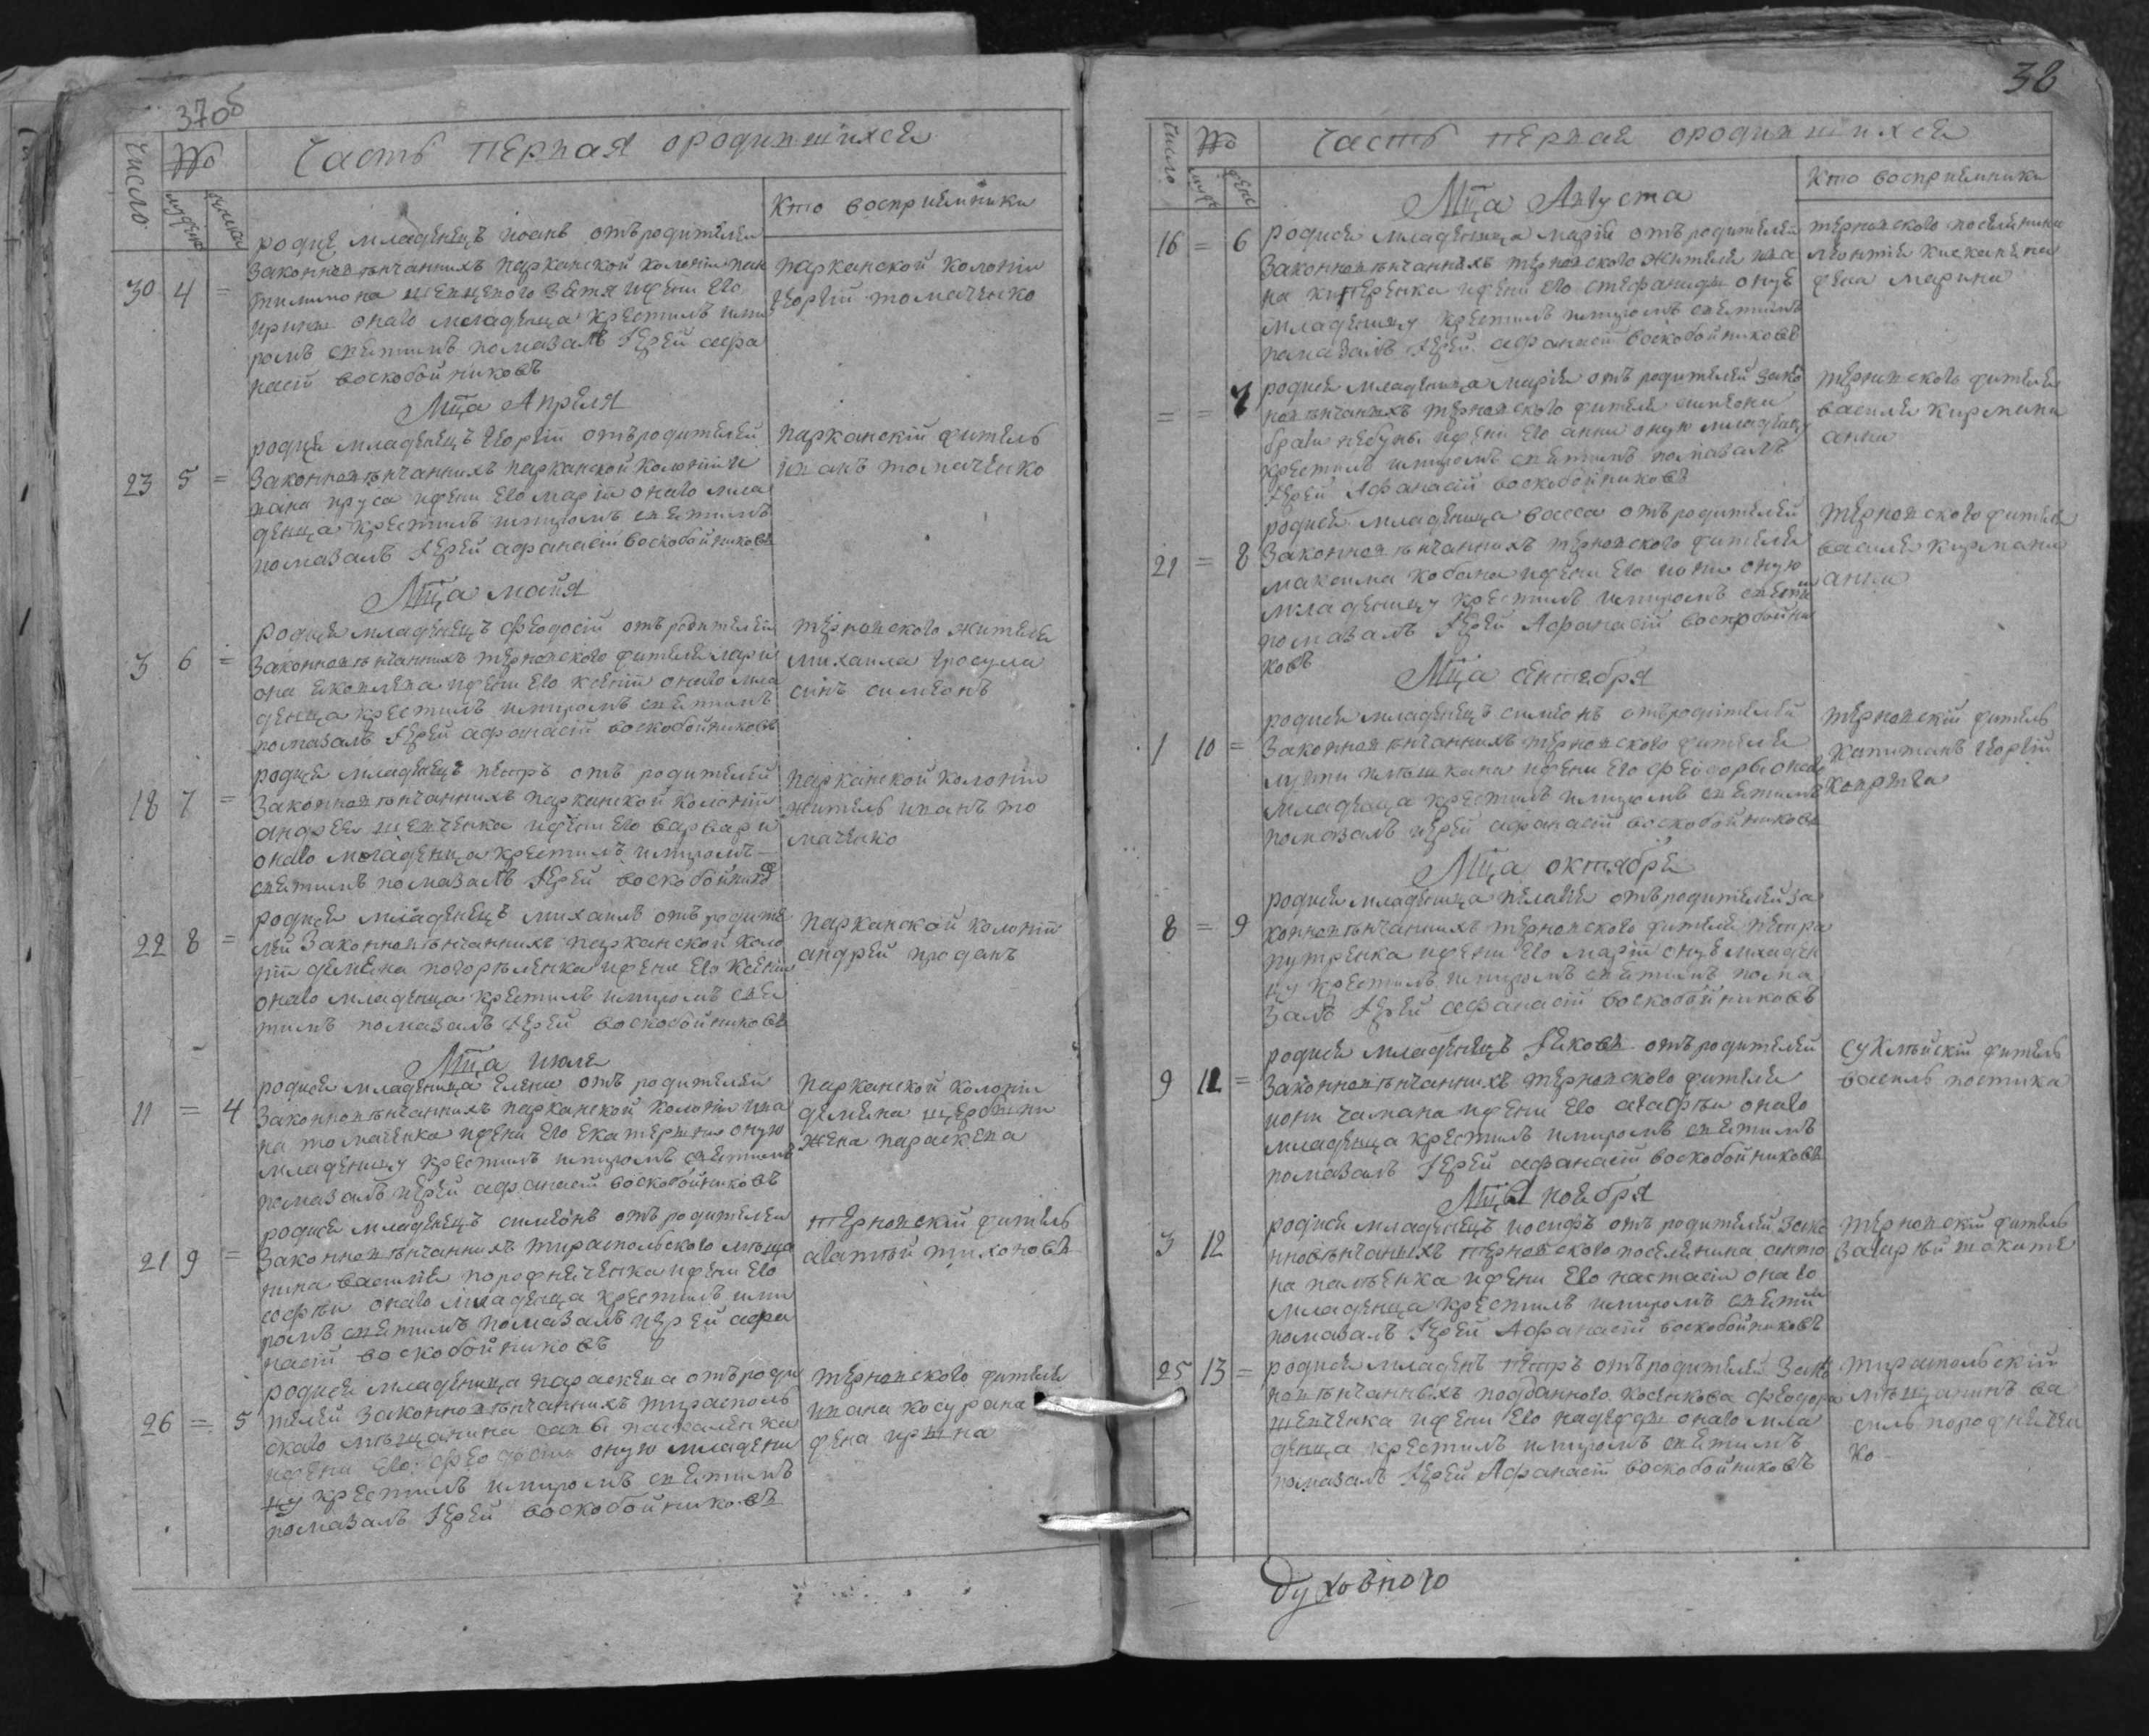 37об
Часть первая ородившихся
число
№
мужска
женска
Кто восприемники
родис младенецъ иоанъ отъ родителей
30 4 = законновѣнчанихъ парканской колоніи пан
телимона шевцевого зятя ижени его
ирини онаго младенца крестилъ имѵ
ромъ святимъ помазалъ Іерей афа
насій воскобойниковъ
парканской колоніи
георгій томаченко
Мца Апреля
родися младенецъ георгій отъ родителей
23 5 = законновѣнчанихъ парканской колоніи и
вана пруса ижени его маріи онаго мла
денца крестилъ имѵромъ святимъ
помазалъ Іерей афанасій воскобойниковъ
парканскій житель
иванъ томаченко
Мца мая
родися младенецъ феодосій отъ родителей
3 6 = законновѣнчанихъ терновского жителя лари
она яковлева ижени его ксеніи онаго мла
денца крестилъ имѵромъ святимъ
помазалъ Іерей афанасій воскобойниковъ
терновского жителя
михаила гросула
синъ симеонъ
родися младенецъ петръ отъ родителей
18 7 = законновѣнчанихъ парканской колоніи
андрея шевченка ижени его варвари
онаго младенца крестилъ имѵромъ
святимъ помазалъ Іерей воскобойников
парканской колоніи
житель иванъ то
маченко
родися младенецъ михаилъ отъ родите
22 8 = лей законновѣнчанихъ парканской коло
ніи демяна погорѣленка ижени его ксеніи
онаго младенца крестилъ имѵромъ свя
тимъ помазалъ Іерей воскобойниковъ
парканской колоніи
андрей проданъ
Мца июля
родися младеница елена отъ родителей
11 = 4 законновѣнчанихъ парканской колоніи ива
на томаченка ижени его екатерини оную
младеницу крестилъ имѵромъ святимъ
помазалъ иерей афанасій воскобойниковъ
парканской колоніи
демяна щербини
жена параскева
родися младенецъ симеонъ отъ родителей
21 9 = законновѣнчанихъ тираспольского мѣща
нина василія порожняченка ижени его
софѣи онаго младенца крестилъ имѵ
ромъ святимъ помазалъ иерей афа
насій воскобойниковъ
терновскій житель
агатѣй тихоновъ
родися младеница параскева отъ роди
26 = 5 телей законновѣнчанихъ тирасполь
скаго мѣщанина сави паскаленка
ижени его феодосіи оную младени
цу крестилъ имѵромъ святимъ
помазалъ Іерей воскобойниковъ
терновского жителя
ивана косурана
жена ирина
38
число
№
муж
жен
Часть первая ородившихся
Кто восприемники
Мца Августа
16 = 6 родися младеница марія отъ родителей
законновѣнчанихъ терновского жителя ива
на киперенка ижени его стефаниди онуе
младеницу крестилъ имѵромъ святимъ
помазалъ Іерей афанасій воскобойниковъ
терновского поселянина
леонтія кискакена
жена марина
= = 7 родися младеница марія отъ родителей зако
новѣнчанихъ терновского жителя симеона
браги небуни ижени его анни оную младеницу
крестилъ имѵромъ святимъ помазалъ
Іерей Афанасій воскобойниковъ
терновского жителя
василя кирмана
анна
родися младеница васса отъ родителей
21 = 8 законновѣнчанихъ терновского жителя
максима кобана ижени его иони оную
младеницу крестилъ имѵромъ святим
помазалъ Іерей Афанасій воскобойни
ковъ
терновского жителя
василя кирмана
анна
Мца сентября
родися младенецъ симеонъ отъ родителей
1 10 = законновѣнчанихъ терновского жителя
лупти мѣшкана ижени его фейдоры онаго
младенца крестилъ имѵромъ святимъ
помазалъ иерей афанасій воскобойниковъ
терновскій житель
капитанъ георгій
коприча
Мца октября
родися младеница пелагія отъ родителей за
8 = 9 конновѣнчанихъ терновского жителя петра
путренка ижени его маріи онуе младен
цу крестилъ имѵромъ святимъ пома
залъ Іерей афанасій воскобойниковъ
родися младенецъ Іяковъ отъ родителей
9 11 = законновѣнчанихъ терновского жителя
иони чамана ижени его агафѣи онаго
младенца крестилъ имѵромъ святимъ
помазалъ Іерей афанасій воскобойниковъ
суклѣйскій житель
василь постика
Мца ноября
родися младенецъ иосифъ отъ родителей зако
3 12 нновѣнчанихъ терновского поселянина анто
на палѣенка ижени его настасіи онаго
младенца крестилъ имѵромъ святим
помазалъ Іерей Афанасій воскобойниковъ
терновскій житель
загарѣй шаките
25 13 = родися младенъ петръ отъ родителей зако
новѣнчанныхъ подданного косенкова феодора
шевченка ижени его надежди онаго мла
денца крестилъ имѵромъ святимъ
помазалъ Іерей Афанасій воскобойниковъ
тираспольскій
мѣщанинъ ва
силь порожнячен
ко
духовного